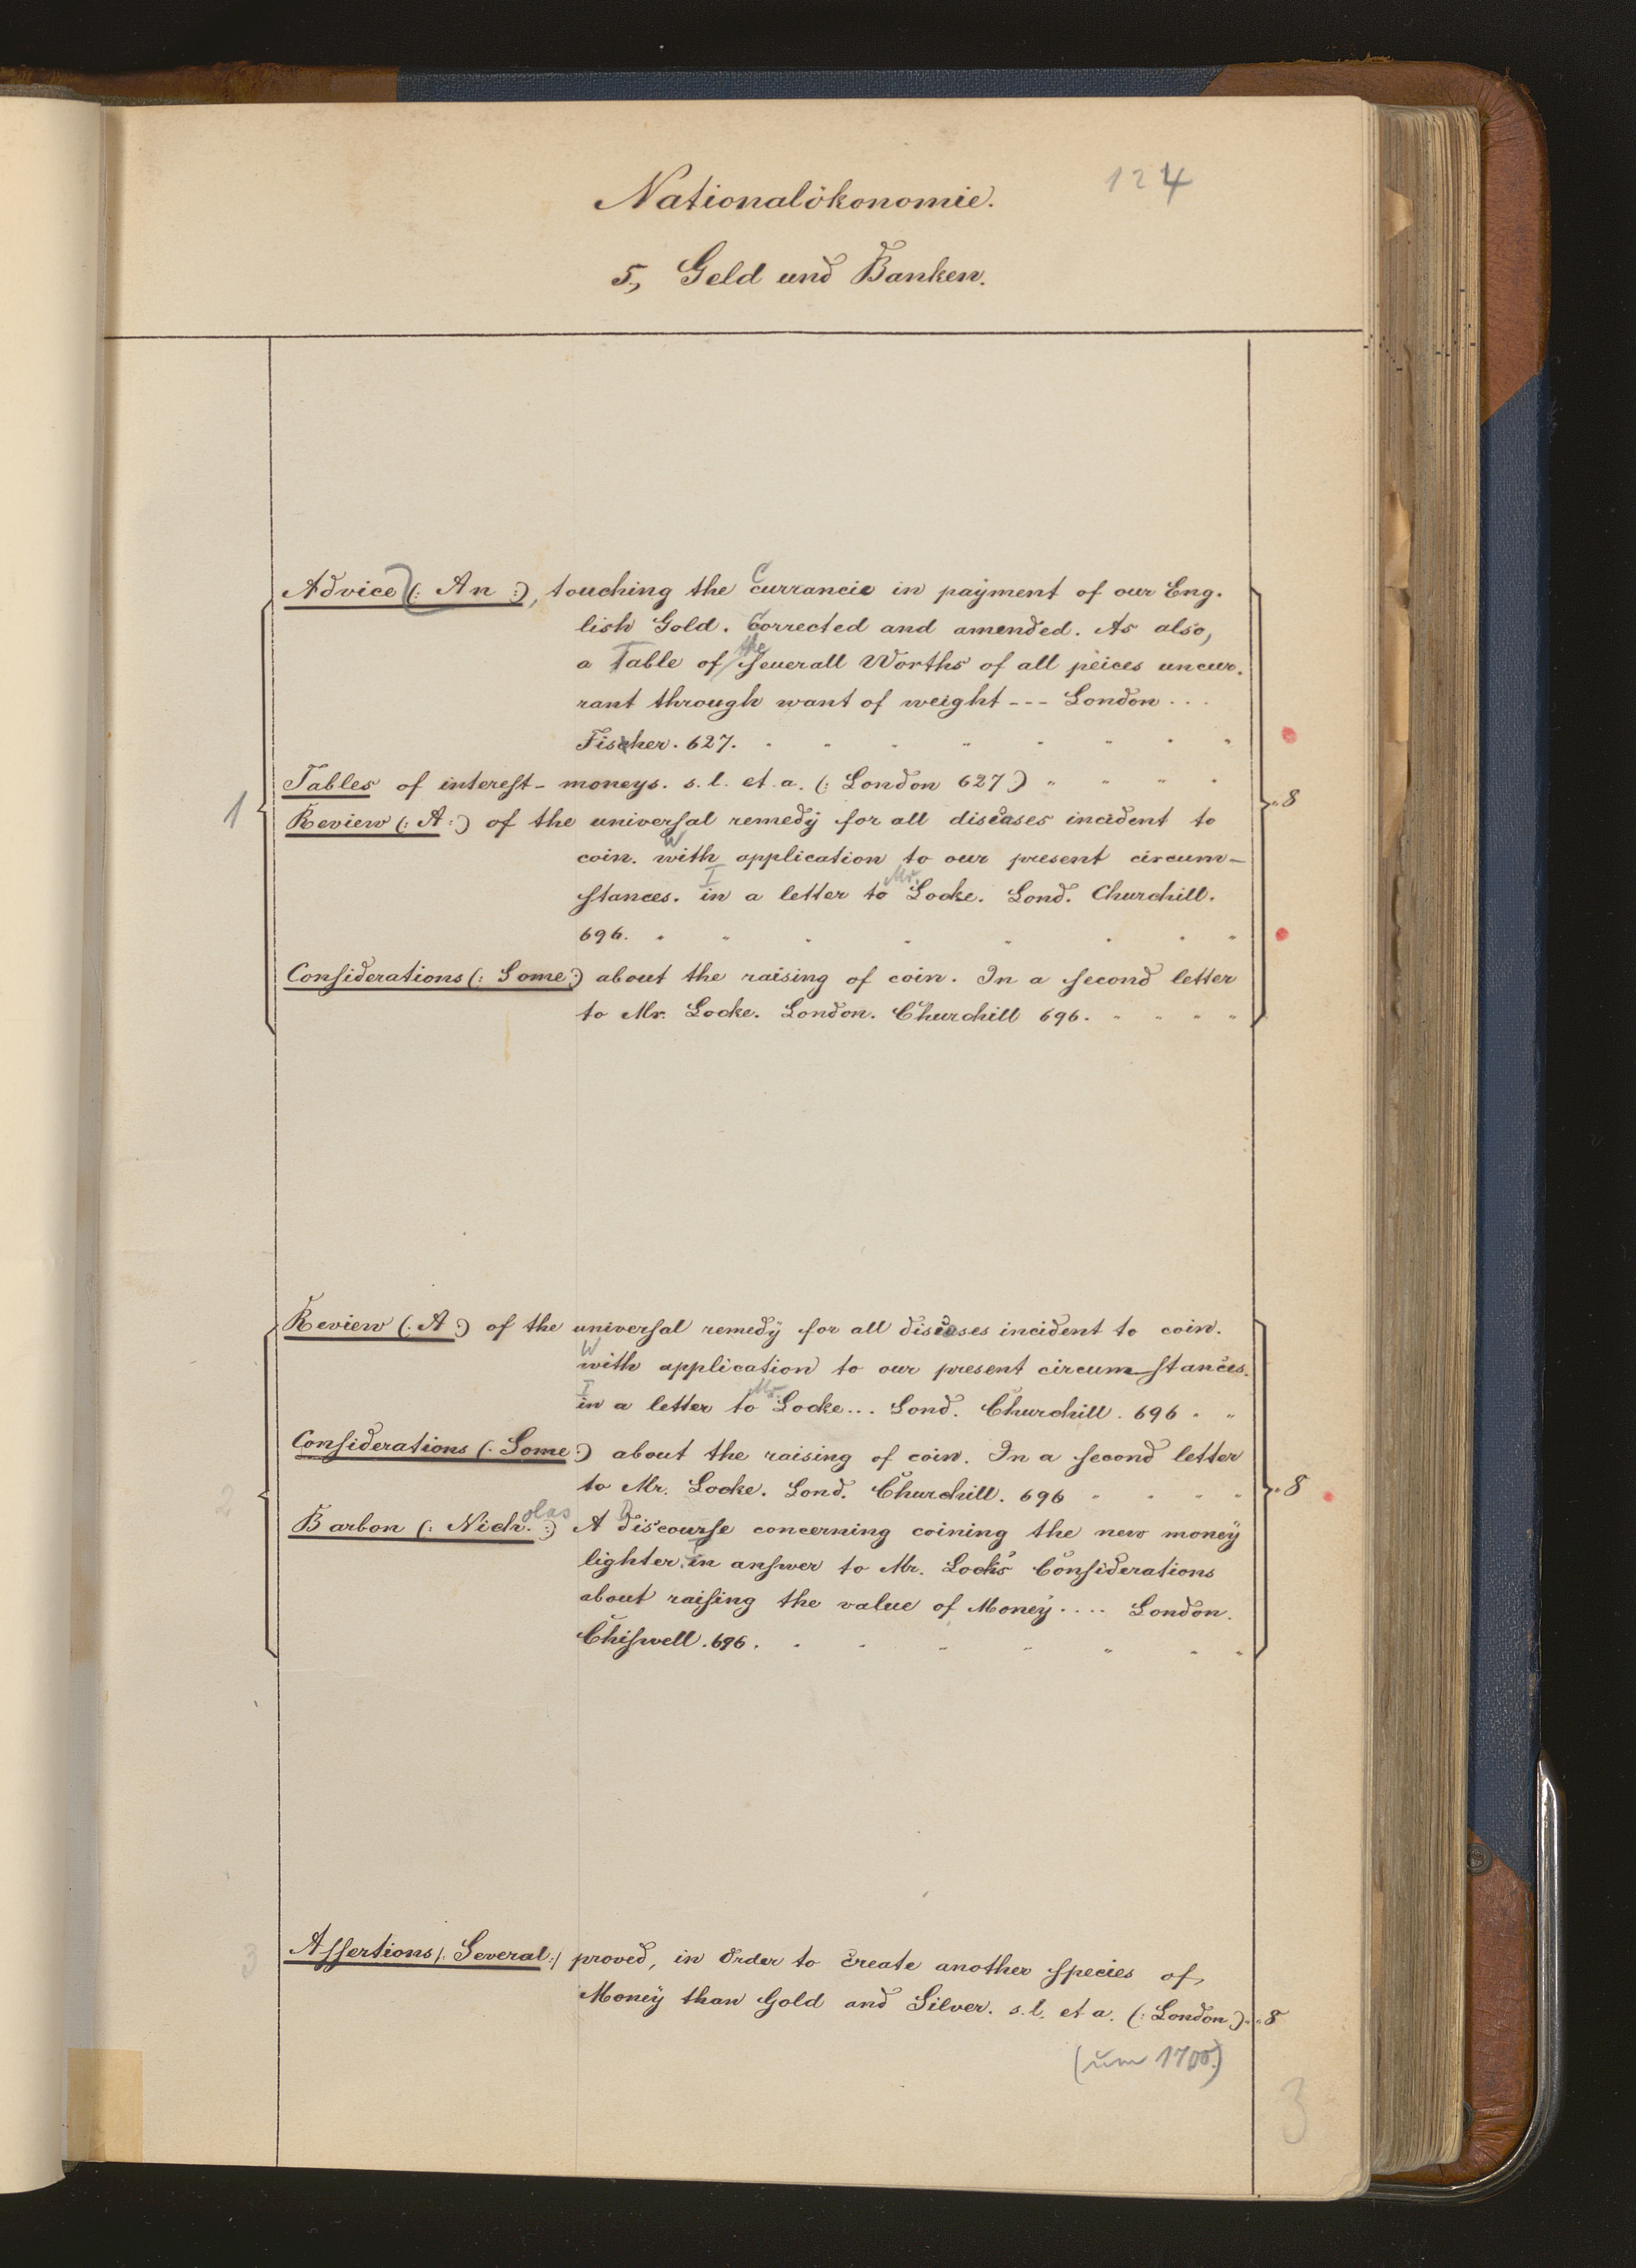 124
Nationalökonomie.
5, Geld und Banken.
Advice (: An :), touching the Currancie in payment of our Eng-
lish Gold. Corrected and amended. As also,
a Table of the seuerall Worths of all peices uncur-
rant through want of weight --- London ...
Fisher. 627.
Tables of interest-moneys. s. l. et a. (: London 627 :)
1
8
Review (: A :) of the universal remedy for all diseases incident to
coin. With application to our present circum-
stances. In a letter to Mr. Locke. Lond. Churchill.
696.
Considerations (: Some :) about the raising of coin. In a second letter
to Mr. Locke. London. Churchill 696.
Review (: A :) of the universal remedy for all diseases incident to coin.
With application to our present circumstances.
In a letter to Mr. Locke... Lond. Churchill. 696
Considerations (: Some :) about the raising of coin. In a second letter
to Mr. Locke. Lond. Churchill. 696
2
8
Barbon (: Nicholas :) A Discourse concerning coining the new money
lighter. In answer to Mr. Lock's Considerations
about raising the value of Money .... London.
Chiswell. 696.
3 Assertions /: Several :/ proved, in order to create another species of
Money than Gold and Silver. s. l. et a. (: London :) 8
(um 1700.)
3